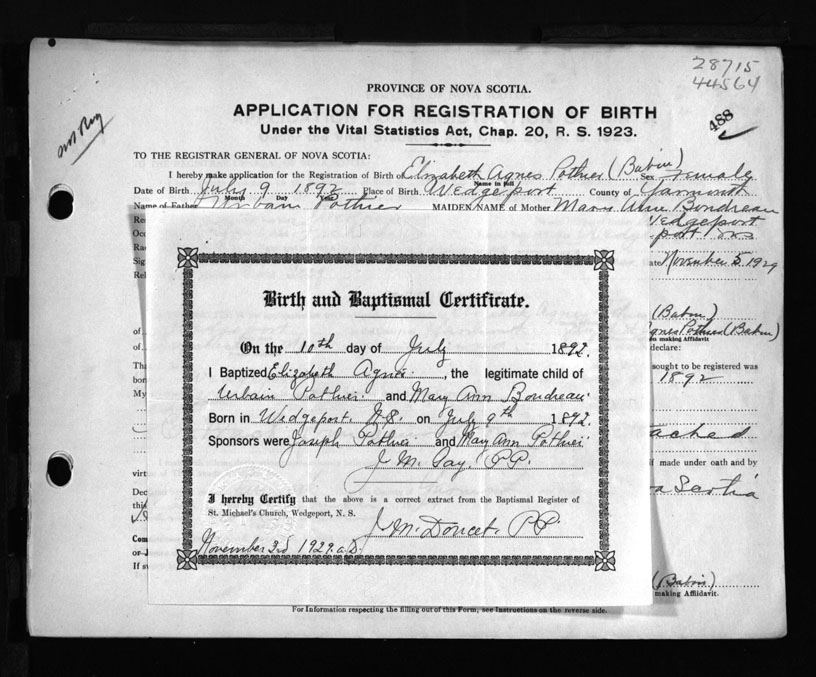 28715
44564
488
PROVINCE OF NOVA SCOTIA.
APPLICATION FOR REGISTRATION OF BIRTH
Under the Vital Statistics Act, Chap. 20, R. S. 1923.
TO THE REGISTRAR GENERAL OF NOVA SCOTIA:
I hereby make application for the Registration of Birth of Elizabeth Agnes Pothier (Babin) Sex Female
Name in full
Date of Birth July 9 1892 Place of Birth Wedgeport County of Yarmouth
Month Day Year
Name of Father Urbain Pothier MAIDEN NAME of Mother Mary Ann Boudreau
Wedgeport
port NS
Date November 5 1929
(Babin)
Agnes Pothier (Babin)
on making Affidavit
declare:
sought to be registered was
1892
ached
if made under oath and by
Scotia
(Babin)
making Affidavit.
Birth and Baptismal Certificate.
On the 10th day of July 1892.
I Baptized Elizabeth Agnes, the legitimate child of
Urbain Pothier and Mary Ann Boudreau
Born in Wedgeport N.S. on July 9th 1892.
Sponsors were Joseph Pothier and Mary Ann Pothier
J M. Gay. P.P.
I hereby Certify that the above is a correct extract from the Baptismal Register of
St. Michael's Church, Wedgeport, N. S.
J M. Doucet. P.P.
November 3d 1929. a.D.
For Information respecting the filling out of this Form, see Instructions on the reverse side.